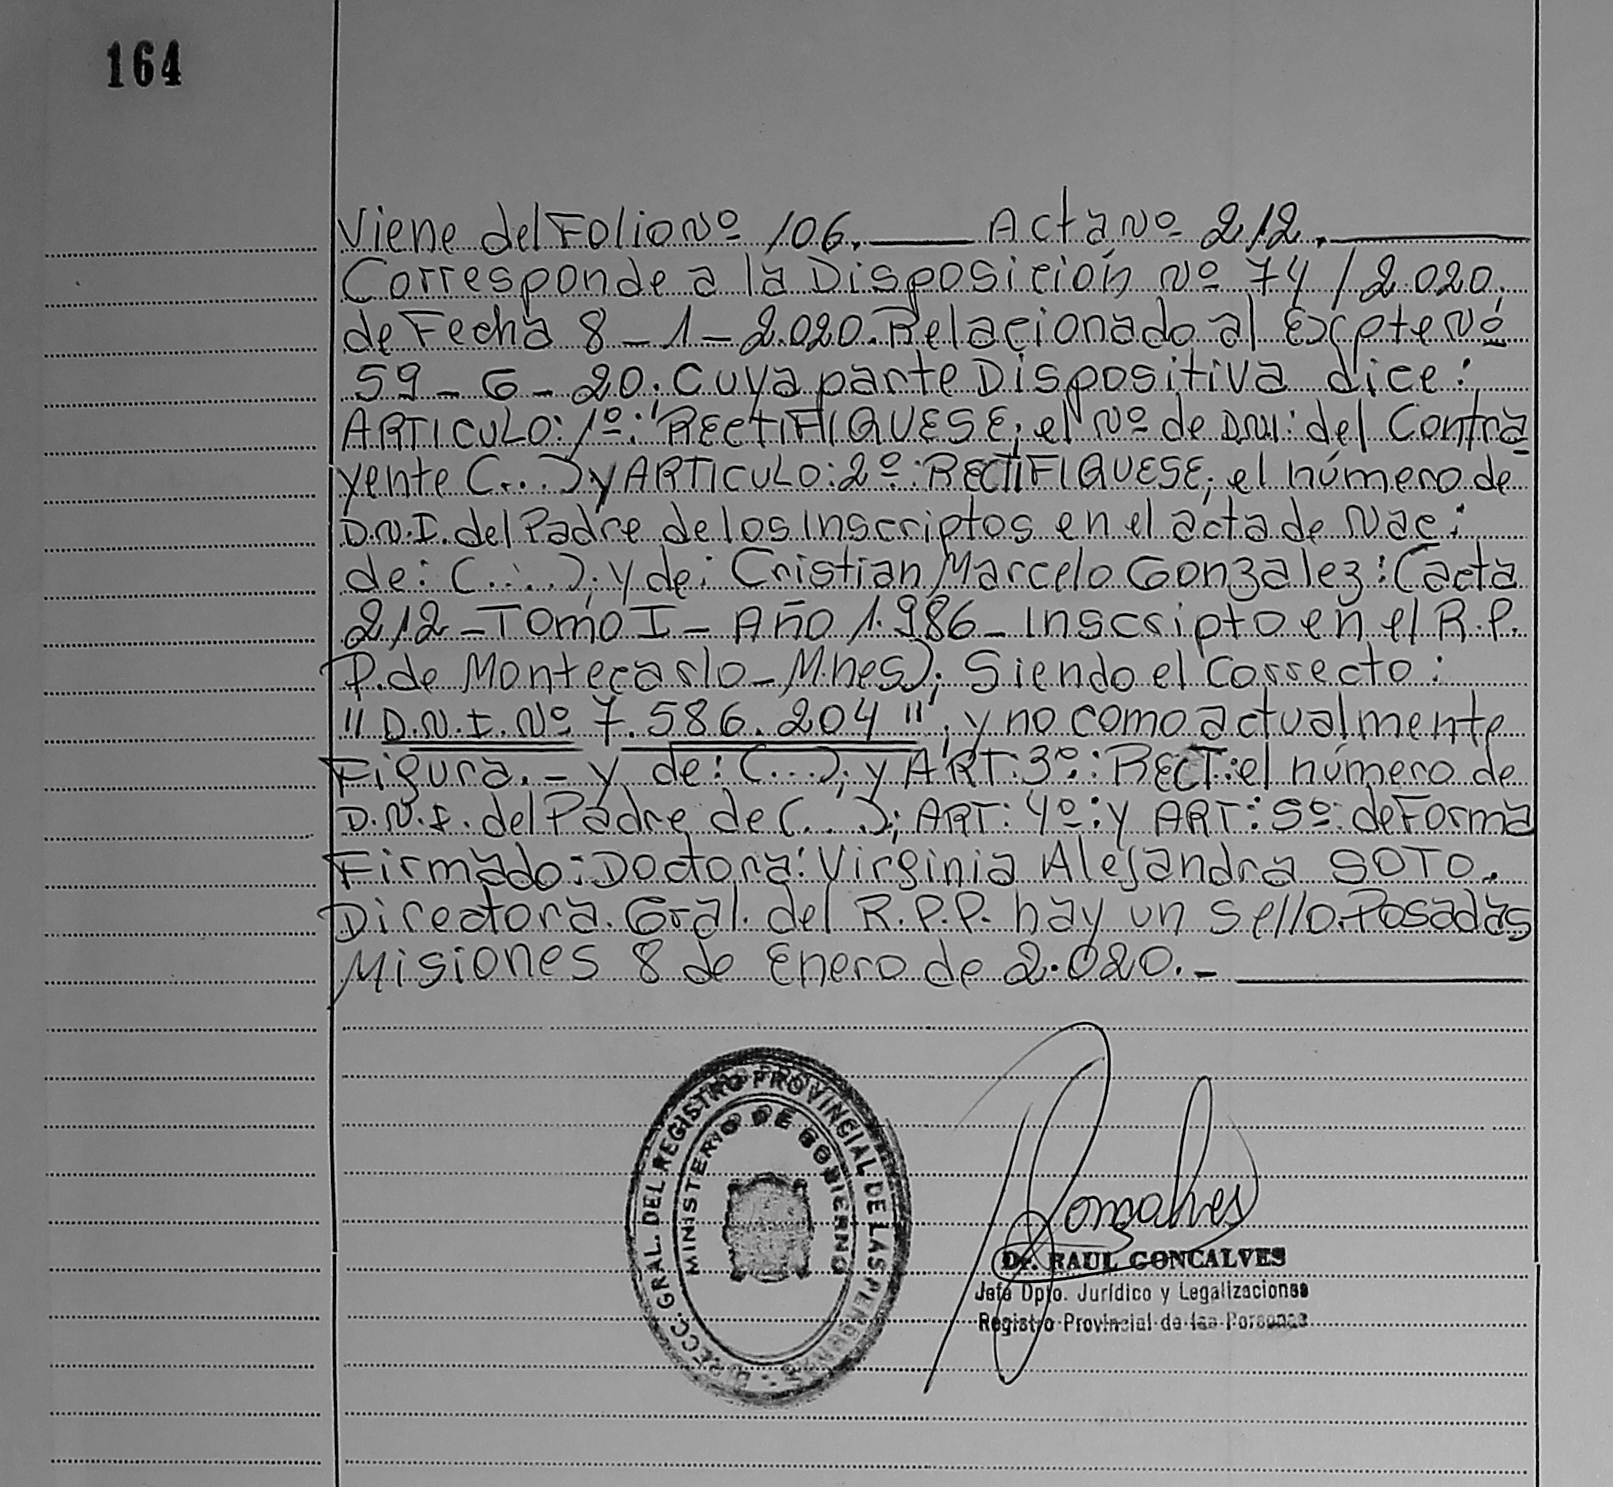 164
Viene del Folio Nº 106. Acta Nº 212.
Corresponde a la Disposición Nº 74/2.020.
de Fecha 8-1-2.020. Relacionado al Excpte Nº
59-G-20. Cuya parte Dispositiva dice:
ARTICULO: 1º: "RECTIFIQUESE; el Nº de DNI: del Contra
yente (...) y ARTICULO: 2º: RECTIFIQUESE; el número de
D.N.I. del Padre de los Inscriptos en el acta de Nac:
de: (....); y de: Cristian Marcelo Gonzalez: (acta
212-TOMO I- Año 1.986- Inscripto en el R.P.
P. de Montecarlo-M.nes); Siendo el Correcto:
"D.N.I. Nº 7.586.204"; y no como actualmente
Figura.- y de: (...); y ART: 3º: RECT: el número de
D.N.I. del Padre de (...); ART: 4º: y ART: 5º: de Forma
Firmado: Doctora: Virginia Alejandra SOTO.
Directora. Gral. del R.P.P. hay un sello. Posadas
Misiones 8 de Enero de 2.020.-
DIRECC. GRAL. DEL REGISTRO PROVINCIAL DE LAS PERSONAS
MINISTERIO DE GOBIERNO
Gonçalves
Dr. RAUL GONCALVES
Jefe Dpto. Jurídico y Legalizaciones
Registro Provincial de las Personas